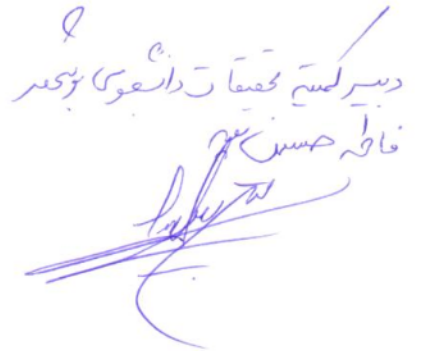 دبیر کمیته تحقیقات دانشجویی بوشهر
فاطمه حسینی